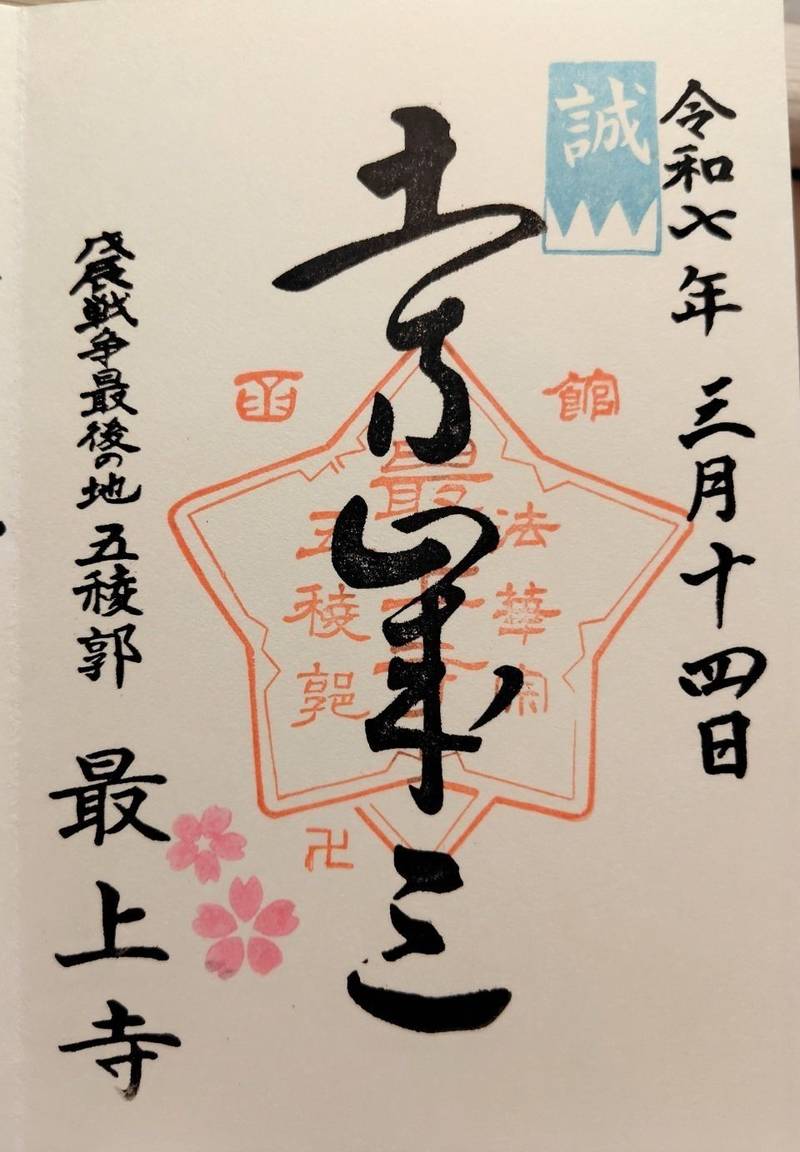 令和七年 三月十四日
誠
土方歳三
函館
法華宗
最上寺
五稜郭
卍
戊辰戦争最後の地 五稜郭 最上寺